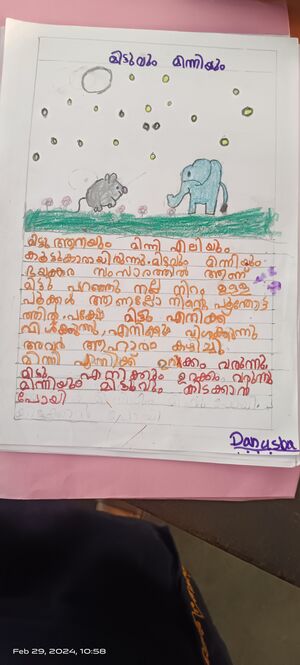 മിട്ടുവും മിന്നിയും
മിട്ടു ആനയും മിന്നി എലിയും
കൂട്ടുകാരായിരുന്നു. മിട്ടുവും മിന്നിയും
ഭയങ്കര സംസാരത്തിൽ ആണ്
മിട്ടു പറഞ്ഞു നല്ല നിറം ഉള്ള
പൂക്കൾ ആണല്ലോ നിന്റെ പൂന്തോട്ട
ത്തിൽ. പക്ഷേ മിട്ടു എനിക്ക്
വിശക്കുന്നു, എനിക്കും വിശക്കുന്നു
അവർ ആഹാരം കഴിച്ചു
മിന്നി എന്നിക്ക് ഉറക്കം വരുന്നു
മിട്ടു എന്നിക്കും ഉറക്കം വരുന്നു
മിന്നിയും മിട്ടുവും കിടക്കാൻ
പോയി
Danusha
Feb 29, 2024, 10:58